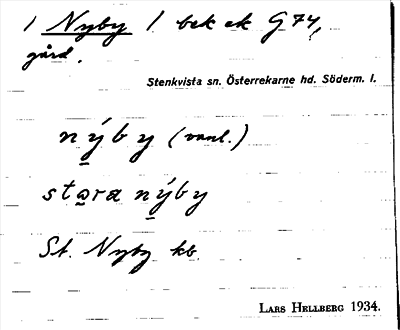 1 Nyby 1 bek ek G 74,
gård.
Stenkvista sn. Österrekarne hd. Söderm. l.
ný̱by (vanl.)
sto̱ra ný̱by
St. Nyby kb.
Lars Hellberg 1934.